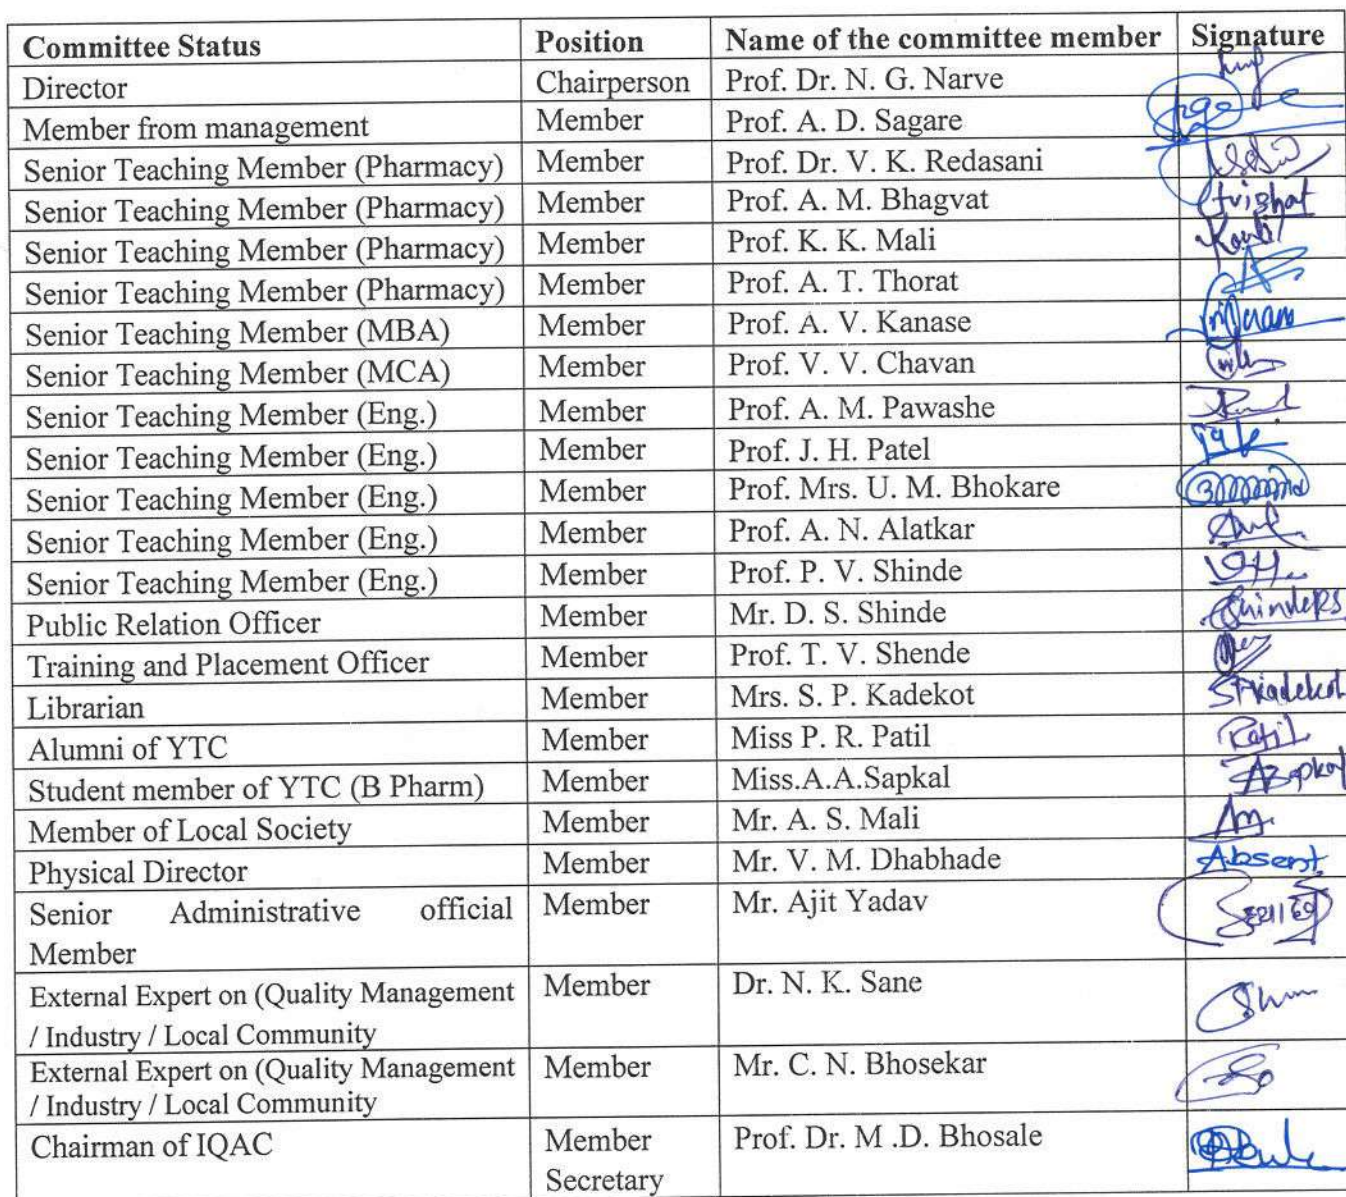 Committee Status Position Name of the committee member Signature
Director Chairperson Prof. Dr. N. G. Narve
Member from management Member Prof. A. D. Sagare
Senior Teaching Member (Pharmacy) Member Prof. Dr. V. K. Redasani
Senior Teaching Member (Pharmacy) Member Prof. A. M. Bhagvat
Senior Teaching Member (Pharmacy) Member Prof. K. K. Mali
Senior Teaching Member (Pharmacy) Member Prof. A. T. Thorat
Senior Teaching Member (MBA) Member Prof. A. V. Kanase
Senior Teaching Member (MCA) Member Prof. V. V. Chavan
Senior Teaching Member (Eng.) Member Prof. A. M. Pawashe
Senior Teaching Member (Eng.) Member Prof. J. H. Patel
Senior Teaching Member (Eng.) Member Prof. Mrs. U. M. Bhokare
Senior Teaching Member (Eng.) Member Prof. A. N. Alatkar
Senior Teaching Member (Eng.) Member Prof. P. V. Shinde
Public Relation Officer Member Mr. D. S. Shinde
Training and Placement Officer Member Prof. T. V. Shende
Librarian Member Mrs. S. P. Kadekot SPKadekot
Alumni of YTC Member Miss P. R. Patil
Student member of YTC (B Pharm) Member Miss.A.A.Sapkal
Member of Local Society Member Mr. A. S. Mali
Physical Director Member Mr. V. M. Dhabhade Absent
Senior Administrative official Member Mr. Ajit Yadav
Member
External Expert on (Quality Management Member Dr. N. K. Sane
/ Industry / Local Community
External Expert on (Quality Management Member Mr. C. N. Bhosekar
/ Industry / Local Community
Chairman of IQAC Member Prof. Dr. M .D. Bhosale
Secretary